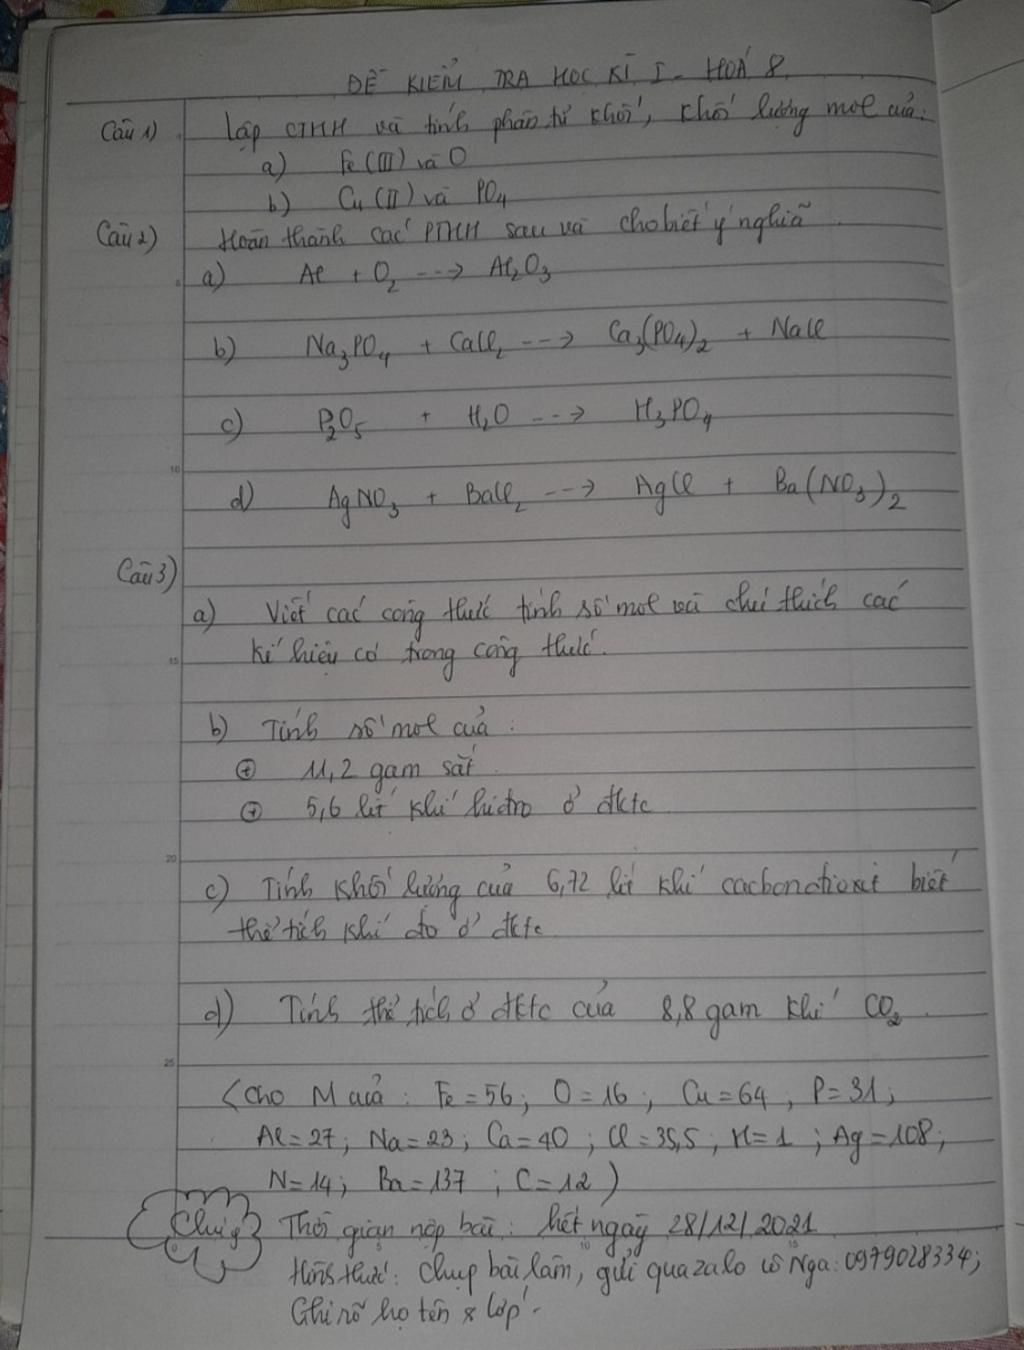 ĐỀ KIỂM TRA HỌC KÌ I - HOÁ 8
Câu 1) Lập CTHH và tính phân tử khối, khối lượng mol của:
a) Fe (III) và O
b) Cu (II) và PO4
Câu 2) Hoàn thành các PTHH sau và cho biết ý nghĩa
a) Al + O2 ---> Al2O3
b) Na3PO4 + CaCl2 ---> Ca3(PO4)2 + NaCl
c) P2O5 + H2O ---> H3PO4
10
d) AgNO3 + BaCl2 ---> AgCl + Ba(NO3)2
Câu 3)
a) Viết các công thức tính số mol và chú thích các
kí hiệu có trong công thức.
15
b) Tính số mol của:
+ 11,2 gam sắt
+ 5,6 lít khí hiđro ở đktc
20
c) Tính khối lượng của 6,72 lít khí cacbonđioxit biết
thể tích khí đo ở đktc
d) Tính thể tích ở đktc của 8,8 gam khí CO2.
25
(Cho M của: Fe = 56; O = 16; Cu = 64; P = 31;
Al = 27; Na = 23; Ca = 40; Cl = 35,5; H = 1; Ag = 108;
N = 14; Ba = 137; C = 12)
Chú ý Thời gian nộp bài: hết ngày 28/12/2021
Hình thức: chụp bài làm, gửi qua zalo cô Nga: 0979028334;
Ghi rõ họ tên & lớp -